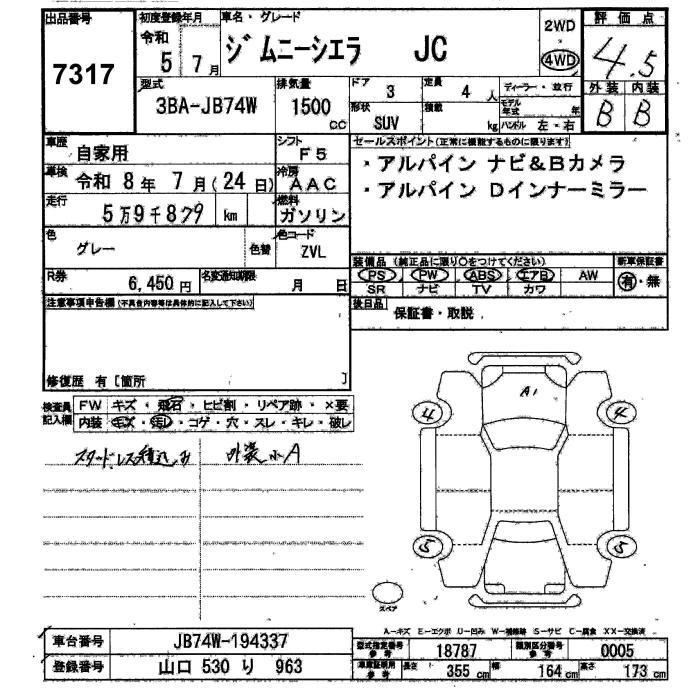 出品番号
7317
初度登録年月
令和
5 7月
車名・グレード
ジムニーシエラ JC
2WD
4WD
評価点
4.5
外装 内装
B B
型式
3BA-JB74W
排気量
1500
cc
ドア 3
定員 4 人
形状
SUV
積載
kg
ディーラー・並行
モデル年式 年
ハンドル 左・右
車歴
自家用
シフト
F5
車検 令和 8年 7月(24日)
冷房
AAC
走行
5万9千879 km
燃料
ガソリン
セールスポイント(正常に機能するものに限ります)
・アルパイン ナビ&Bカメラ
・アルパイン Dインナーミラー
色
グレー
色替
色コード
ZVL
R券
6,450円
名変通知期限
月 日
装備品(純正品に限り○をつけてください)
PS PW ABS エアB AW
SR ナビ TV カワ
新車保証書
有・無
注意事項申告欄(不具合内容等は具体的に記入して下さい)
後日品
保証書・取説
修復歴 有〔箇所 〕
検査員
記入欄
FW キズ・飛石・ヒビ割・リペア跡・×要
内装 キズ・汚レ・コゲ・穴・スレ・キレ・破レ
スタッドレス積込み
外装小A
A1
4 4
5 5
スペア
A-キズ E-エクボ U-凹み W-補修跡 S-サビ C-腐食 XX-交換済
車台番号
JB74W-194337
登録番号
山口 530 り 963
型式指定番号
参考
18787
類別区分番号
参考
0005
車庫証明用
参考
長さ 355 cm
幅 164 cm
高さ 173 cm